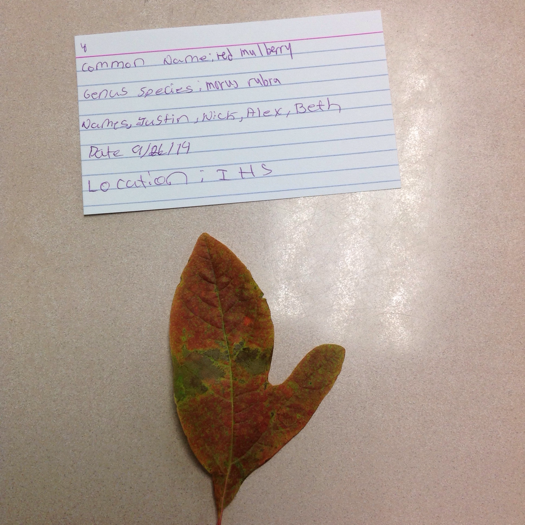 4
Common Name: red mulberry
Genus species: morus rubra
Names, Justin, Nick, Alex, Beth
Date 9/26/14
Location: IHS